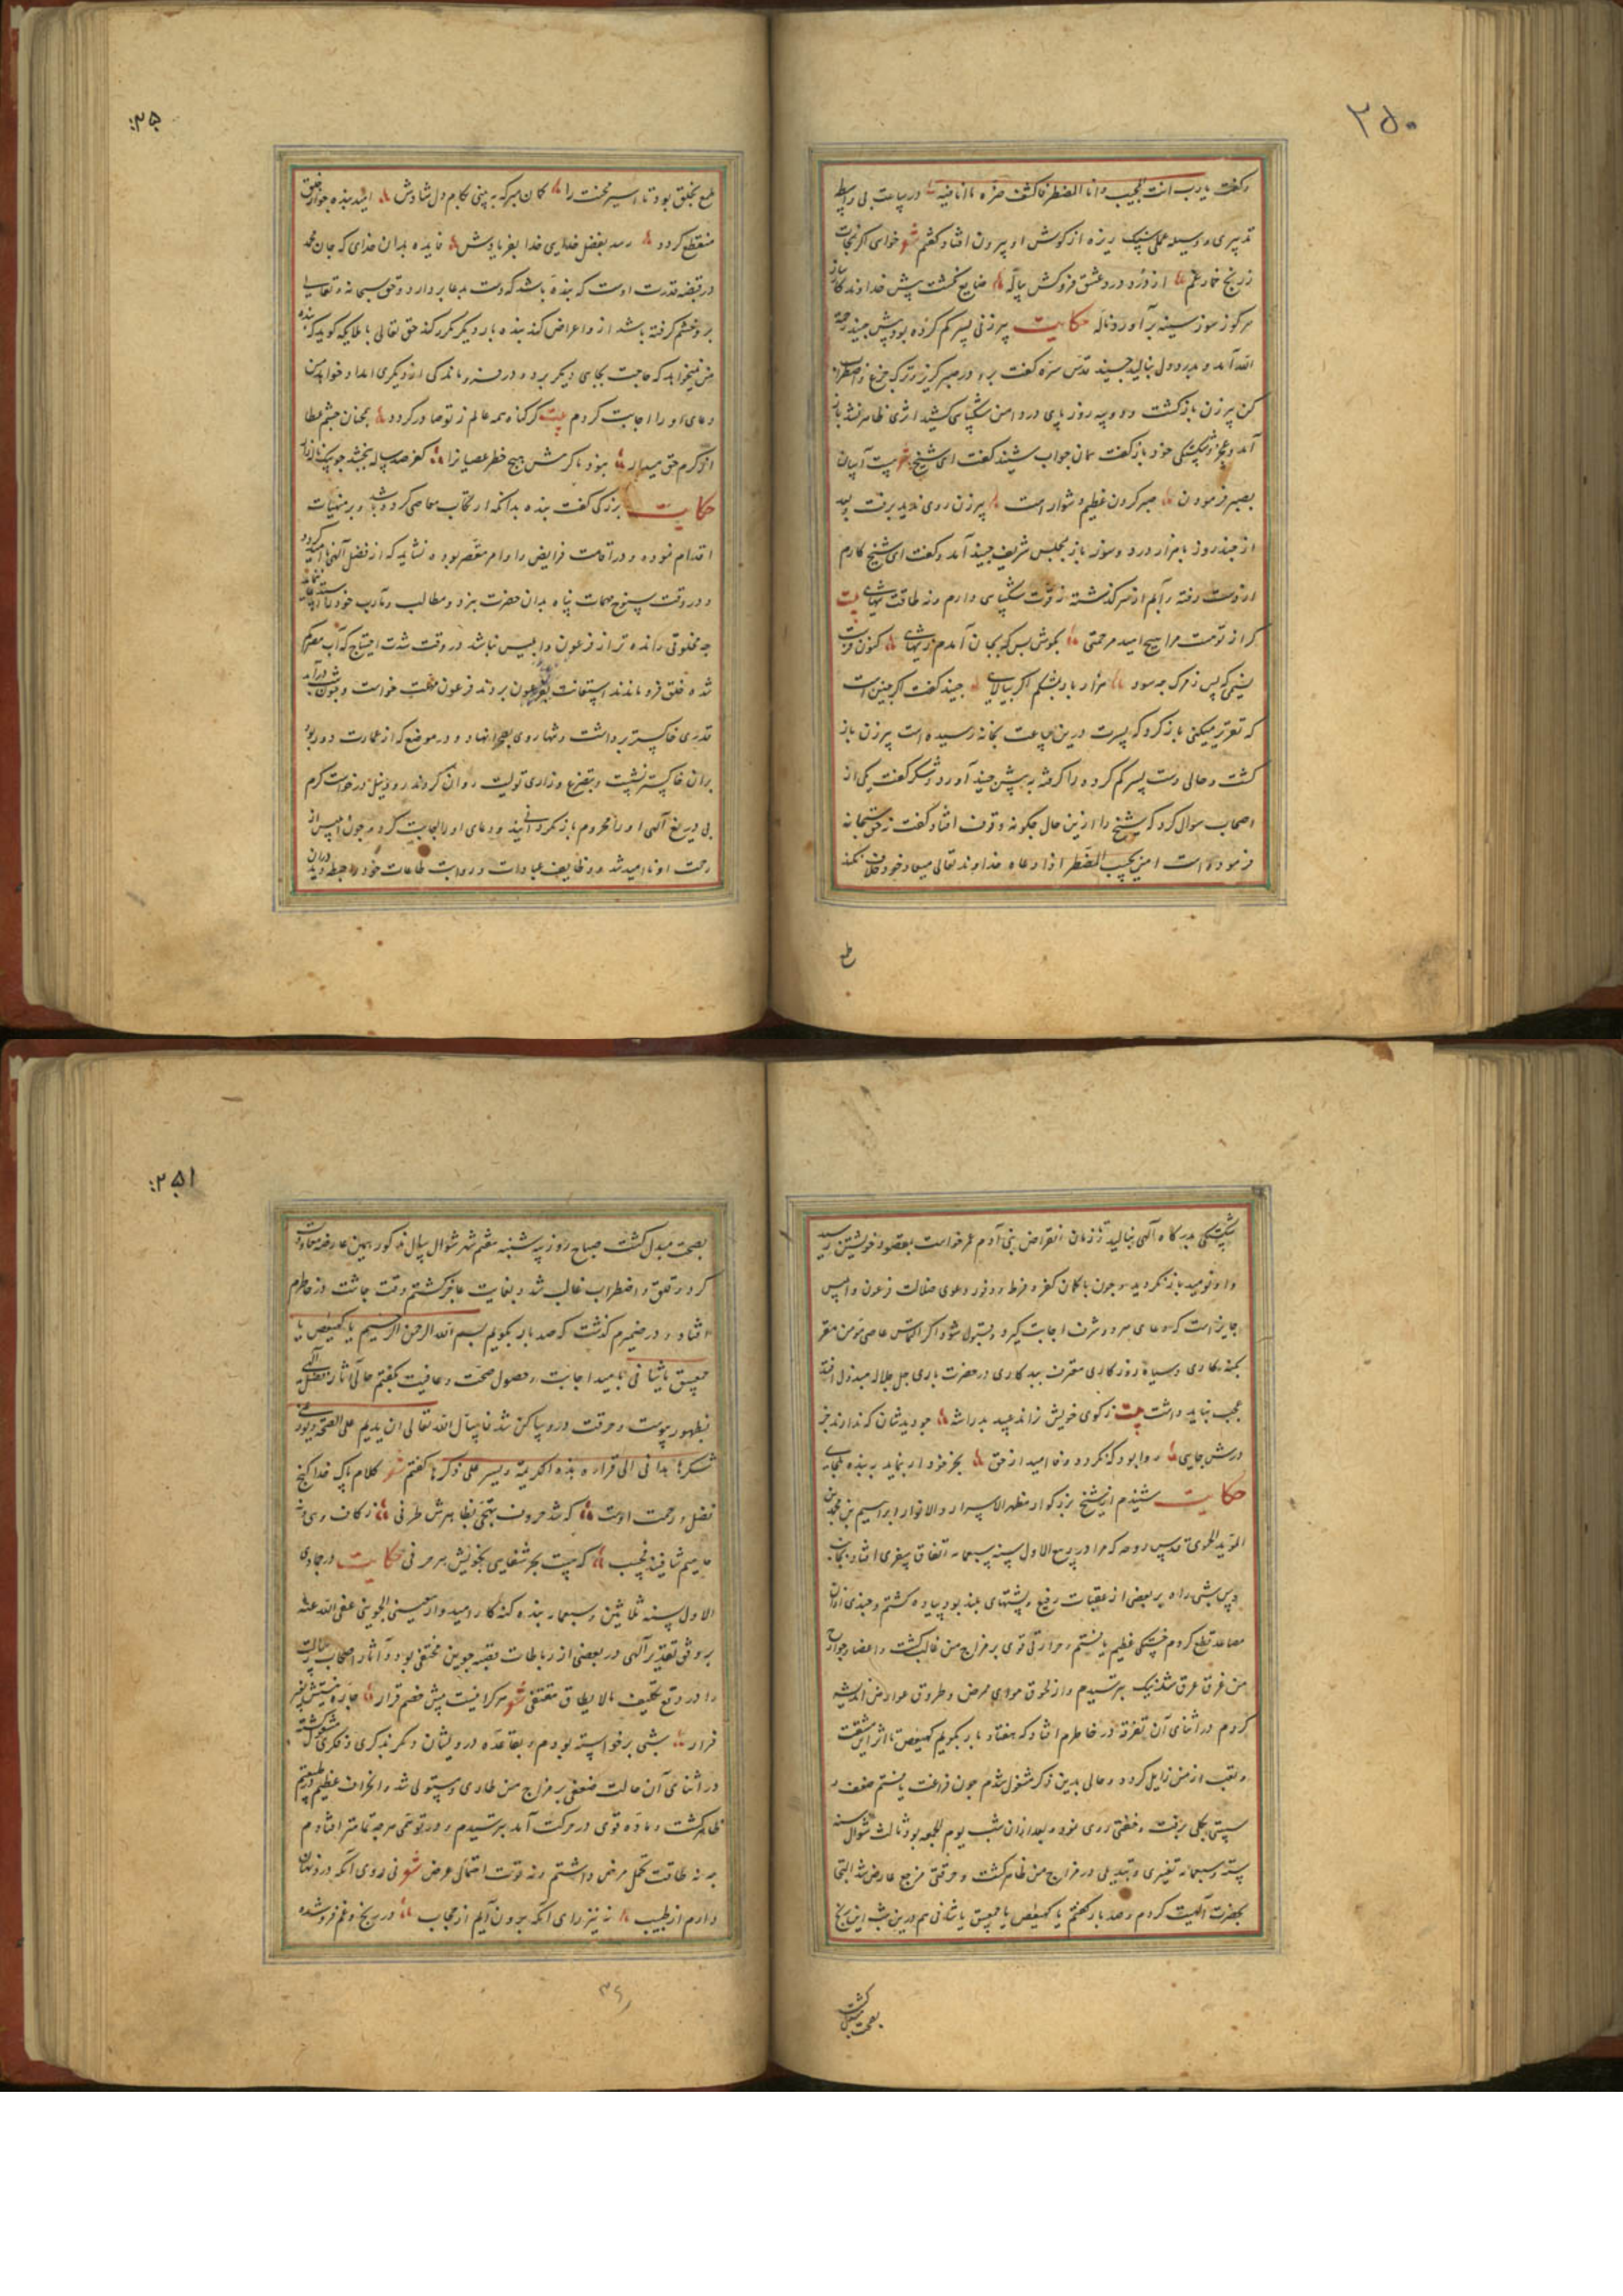 ۲۵۰
وگفت یارب انت المجیب وانا المضطر فاکشف ضره در ساعت بی واسطه
تدبیری و وسیله عملی سنک ریزه از گوش او بیرون افتاد گفتم شعر خواهی اگر نجات
ز رنج خمار غم از درد درد عشق فروکش پیاله ضایع نگشت پیش خداوند کارساز
هرکو ز سوز سینه برآورد ناله حکایت پیرزنی پسر کم کرده بود پیش جنید رحمة
الله آمد و بدرد دل بنالید جنید قدس سره گفت برو و در صبر کریز و ترک جزع و اضطراب
کن پیرزن بازگشت و دو سه روز پای در دامن شکیبایی کشید اثری ظاهر نشد باز
آمد و عجز و شکستگی خود باز گفت همان جواب شنید گفت ای شیخ بیت آسان
بصبر فرمودن صبر کردن عظیم دشوار است پیرزن روی برفت بعد
از چند روز با هزار درد و سوز باز بمجلس شریف جنید آمد و گفت ای شیخ کارم
از دست رفته و آبم از سر گذشته نه قوت شکیبایی دارم و نه طاقت تنهایی بیت
گر از تو هست مرا هیچ امید مرحمتی بکوش بس که بجان آمدم ز تنهایی کنون فرست
نسیمی که پس ز مرک چه سود هزار باد بشکم اگر بپالایی جنید گفت اگر چنین است
که تقریر میکنی باز کرد که پسرت درین ساعت بخانه رسیده است پیرزن باز
گشت و حالی دست پسر کم کرده را گرفته به پیش جنید آورد و شکر گفت یکی از
اصحاب سوال کرد که شیخ را ازین حال چگونه وقوف افتاد گفت نه حق سبحانه
فرموده است امن یجیب المضطر اذا دعاه خداوند تعالی میعاد خود خلاف نکند
طمع
۲۵۰
طمع بخلق بود تا اسیر محنت را گمان مبر که ببینی بکام دل شادش امید بنده چو از خلق
منقطع کردد رسد بفضل خدایی خدا بفریادش فایده بدان خدای که جان محمد
در قبضه قدرت اوست که بنده باشد که دست بدعا بردارد و حق سبحانه و تعالی
برو خشم گرفته باشد ازو اعراض کند بنده بار دیگر مکرر کند حق تعالی با ملائکه گوید که بنده
من نمیخواهد که حاجت بجای دیگر برد و در فرو ماندگی از دیگری امداد خواهد من
دعای او را اجابت کردم بیت گر گناه همه عالم ز تو صادر گردد همچنان چشم عطا
از کرم حق میدار نبود با کرمش هیچ خطر عصیانرا کفر صد ساله ببخشد چو یک
حکایت بزرگی گفت بنده بدانکه ارتکاب معاصی کرده باشد و بر منهیات
اقدام نموده و در اقامت فرایض و اوامر مقصر بوده نشاید که از فضل آلهی نا امید گردد
و در وقت سنوح مهمات پناه بدان حضرت نبرد و مطالب و مآرب خود
چه مخلوقی رانده تر از فرعون و ابلیس نباشد در وقت شدت احتیاج که آب مصر کم
شده خلق فرو ماندند استغاثت بفرعون بردند فرعون مهلت خواست و چون شب درآمد
قدری خاکستر برداشت و تنها روی بصحرا نهاد و در موضعی که از عمارت دور بود
بران خاکستر نشست و بتضرع و زاری تولیت روان کردن رود نیل درخواست کرم
بی دریغ آلهی او را محروم باز نگردانید و دعای او را اجابت کرد و چون ابلیس از
رحمت او نا امید شد و وظایف عبادات و رواتب طاعات خود را حبطه دید
شکستگی بدرگاه آلهی بنالید تا زمان انقراض بنی آدم عمر خواست بمقصود خویشتن رسید
و او نومید باز نگردید و چون با کمان کفر و فرط و وفور دعوی ضلالت فرعون و ابلیس
جایز است که دعای هر دو شرف اجابت گیرد و قبول شود اگر التماس عاصی مؤمن مقر
بگنه‌کاری و سیاه روزگاری معترف ببدکاری در حضرت باری جل جلاله مبذول افتد
عجب نباید داشت بیت ز کوی خویش نراند چو دیدشان که ندارند جز
درش جایی روا بود که نگردد ونا امید از حق بجز خود ار بنماید به بنده ملجایی
حکایت شنیدم از شیخ بزرگوار مظهر الاسرار والانوار ابراهیم بن محمد بن
المؤید الحموی قدس روحه که مرا در ربیع الاول سنه سبعمایه اتفاق سفری افتاد
در پس شبی راه بر بعضی از عقبات رفیع و پشتهای بلند بود پیاده گشتم و چندی از آن
مصاعد قطع کردم خستگی عظیم یافتم و حرارتی قوی بر مزاج من غالب گشت و اعضا و جوارح
من غرق عرق شد نیک بترسیدم و از لحوق موادی مرض و طروق عوارض اندیشه
کردم در اثنای آن تفرقه در خاطرم افتاد که هفتاد بار بگویم کهیعص تا اثر این مشقت
و تعب از من زایل گردد و حالی بدین ذکر مشغول شدم چون فراغت یافتم ضعف و
سستی بکلی برفت و خفتی روی نمود و بعد ازان شب یوم الجمعه بود ثالث شوال سنه
سته و سبعمایه تغیری و تبدیلی در مزاج من ظاهر گشت و حرقتی مزعج عارض شد التجا
بحضرت آلهیت کردم و صد بار گفتم یا کهیعص یا حمعسق یا شافی هم درین شب این رنج
بصحت مبدل گشت
۲۵۱
بصحت مبدل گشت صباح روز سه شنبه هفتم شهر شوال سال مذکور همین عارضه معاودت
کرد و قلق و اضطراب غالب شد و بغایت عاجز گشتم وقت چاشت در خاطرم
افتاد و در ضمیرم گذشت که صد بار بگویم بسم الله الرحمن الرحیم یا کهیعص یا
حمعسق یا شافی بامید اجابت و حصول صحت و عافیت بگفتم حالی آثار فضل آلهی
بظهور پیوست و حرقت درو ساکن شد فاسال الله تعالی ان یدیم علی الصحة ویوزعنی
شکرها بدانی الی قراره بذه الکریمة ویسر علی ذکرها گفتم شعر کلام پاک خدا گنج
فضل و رحمت اوست که شد حروف تهجی بظاهرش طرفی ز کاف و
که نیست بحر شفایی بخویش هر حرفی حکایت در جمادی
الاول سنه ثلاثین و سبعمایه بنده گنه کار امیدوار حسینی الجوینی عفی الله عنه
بر وفق تقدیر آلهی در بعضی از رباطات قصبه جوین مختفی بود و آثار اصحاب
را در وقع تکلیف مالا یطاق مقتفی شعر هر کرا نیست پیش خصم قرار چاره نیستش بغیر
فرار شبی برخواسته بودم و بقاعده درویشان و بکر ذکری و فکری مشغول گشته
در اثنای آن حالت ضعفی بر مزاج من طاری و مستولی شد و انحراف عظیم در طبیعتم
ظاهر گشت و ماده قوی در حرکت آمد بترسیدم و در توهمی هرچه تمامتر افتادم
چه نه طاقت تحمل مرض داشتم و نه قوت احتمالی عرض شعر نی روی آنکه درد نهان
دارم از طبیب نه نیز رای آنکه برون آیم از حجاب در رنج و غم فرو شده
۳۶